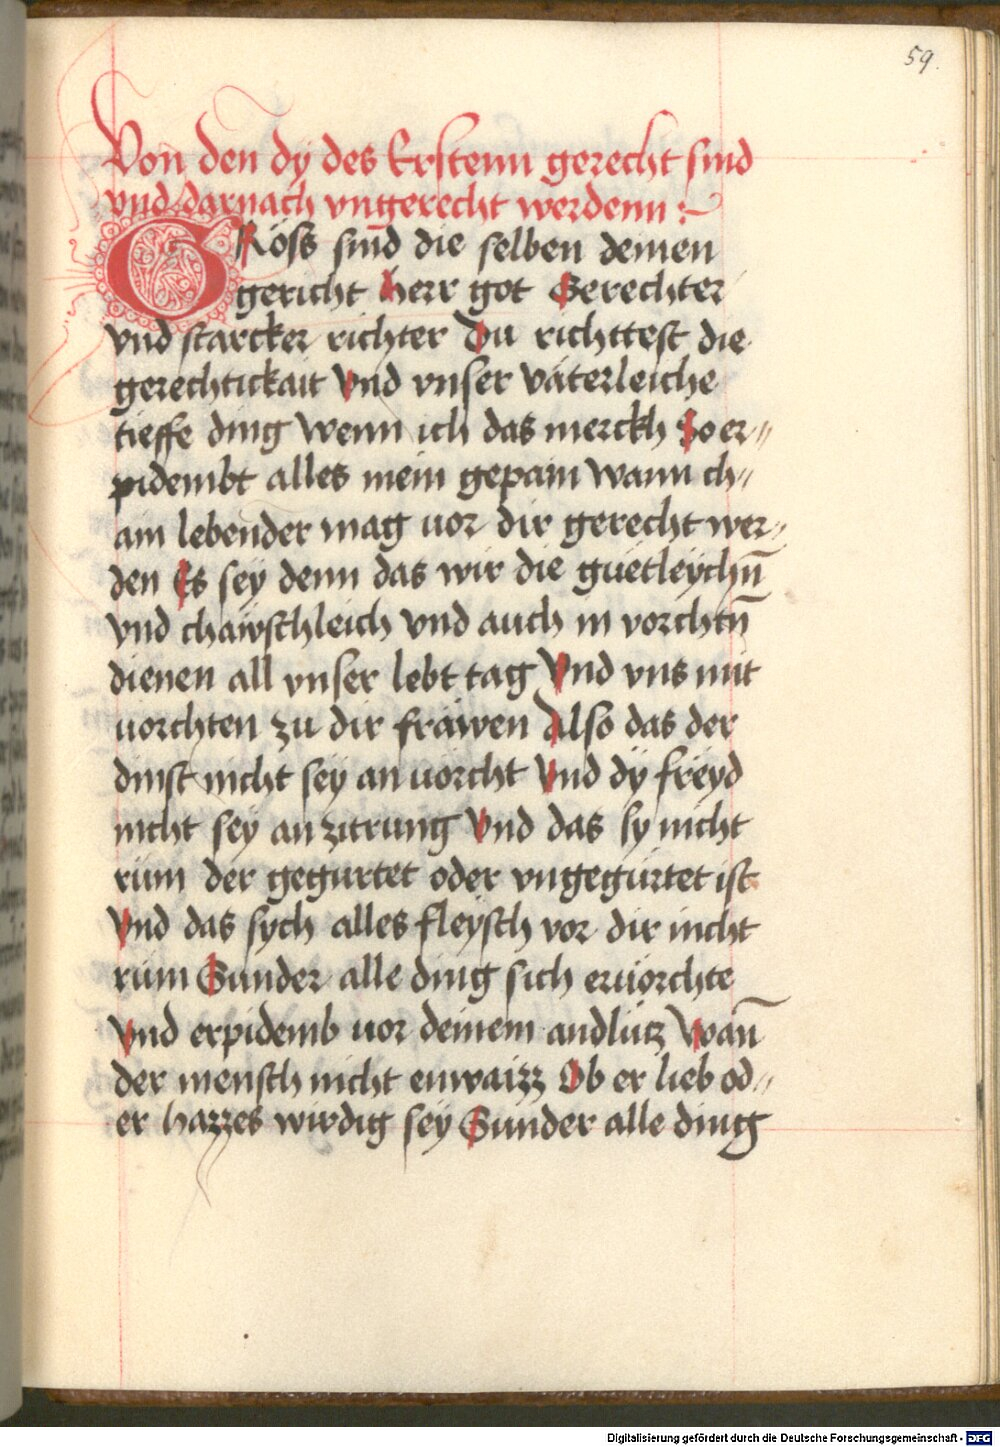 59.
Von den dÿ des Erstenn gerecht sind
vnd darnach vngerecht werdenn :~
GRöss sind die selben deinen
gericht Herr got Gerechter
vnd starcker richter Du richttest die
gerechtickait Vnd vnser väterleiche
tieffe ding Wenn ich das merckh So er//
pidembt alles mein gepain Wann ch//
ain lebender mag uor dir gerecht wer//
den Es sey denn das wir die guetleÿchn̄
vnd chawschleich vnd auch in vorchtn̄
dienen all vnser lebt tag Vnd vns mit
uorchten zu dir fräwen Also das der
dinst nicht seÿ an uorcht Vnd dÿ freÿd
nicht sey an zitrung Vnd das sy nicht
rüm der gegurtet oder vngegürtet ist
Vnd das sych alles fleÿsch vor dir nicht
rüm Sunder alle ding sich eruörchte
Vnd erpidemb uor deinem andlütz Wan̄
der mensch nicht enwaizz Ob er lieb od//
er hazzes wirdig seÿ Sünder alle ding
Digitalisierung gefördert durch die Deutsche Forschungsgemeinschaft - DFG